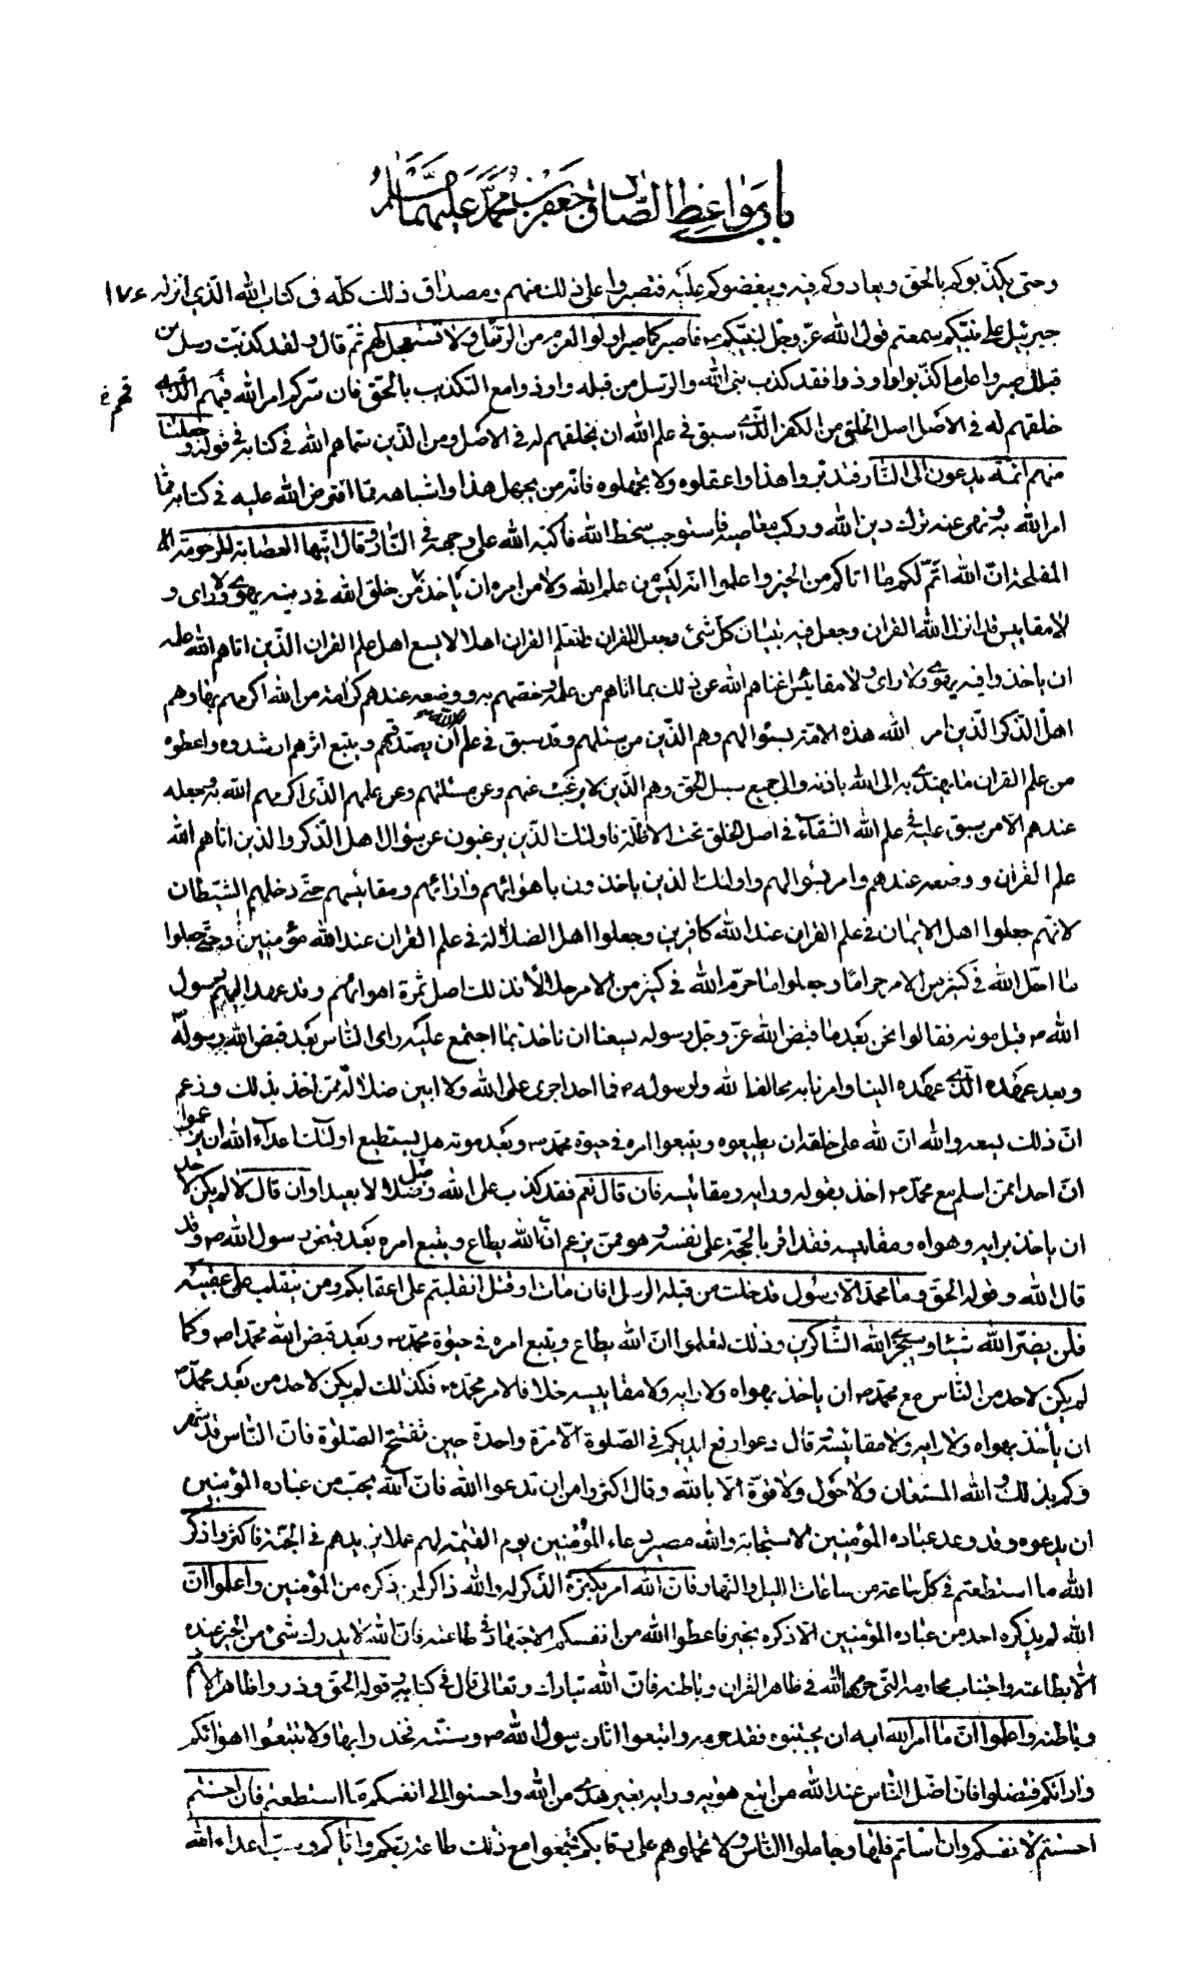 باب مواعظ الصادق جعفر بن محمد عليهما السلام
وحتى يكذبوكم بالحق ويعادوكم فيه ويبغضوكم عليه فتصبروا على ذلك منهم ومصداق ذلك كله فى كتاب الله الذى انزله ١٧٤
جبرئيل على نبيكم سمعتم قول الله عز وجل لنبيكم ص فاصبر كما صبر اولوا العزم من الرسل ولا تستعجل لهم ثم قال ولقد كذبت رسل من
قبلك فصبروا على ما كذبوا واوذوا فقد كذب نبى الله والرسل من قبله واوذوا مع التكذيب بالحق فان سركم امر الله فيهم الذى
خلقهم له فى الاصل اصل الخلق من الكفر الذى سبق فى علم الله ان يخلقهم له فى الاصل ومن الذين سماهم الله فى كتابه فى قوله وجعلنا
منهم ائمة يدعون الى النار فتدبروا هذا واعقلوه ولا تجهلوه فانه من يجهل هذا واشباهه مما افترض الله عليه فى كتابه مما
امر الله به ونهى عنه ترك دين الله وركب معاصيه فاستوجب سخط الله فاكبه الله على وجهه فى النار وقال ايتها العصابة المرحومة
المفلحة ان الله اتم لكم ما اتاكم من الخير واعلموا انه ليس من علم الله ولا من امره ان ياخذ من خلق الله فى دينه بهوى ولا راى و
لا مقاييس قد انزل الله القران وجعل فيه تبيان كل شئ وجعل للقران ولتعلم القران اهلا لا يسع اهل علم القران الذين اتاهم الله علمه
ان ياخذوا فيه بهوى ولا راى ولا مقائيس اغناهم الله عن ذلك بما اتاهم من علمه وخصهم به ووضعه عندهم كرامة من الله اكرمهم بها وهم
اهل الذكر الذين امر الله هذه الامة بسئوالهم وهم الذين من سئلهم وقد سبق فى علم الله ان يصدقهم ويتبع اثرهم ارشدوه واعطوه
من علم القران ما يهتدى به الى الله باذنه والى جميع سبل الحق وهم الذين لا يرغب عنهم وعن مسئلتهم وعن علمهم الذى اكرمهم الله به وجعله
عندهم الا من سبق عليه فى علم الله الشقاء فى اصل الخلق تحت الاظلة فاولئك الذين يرغبون عن سؤال اهل الذكر والذين اتاهم الله
علم القران ووضعه عندهم وامر بسئوالهم واولئك الذين ياخذون باهوائهم وارائهم ومقائيسهم حتى دخلهم الشيطان
لانهم جعلوا اهل الايمان فى علم القران عند الله كافرين وجعلوا اهل الضلالة فى علم القران عند الله مؤمنين وحتى جعلوا
ما احل الله فى كثير من الامر حراما وجعلوا ما حرم الله فى كثير من الامر حلالا فذلك اصل ثمرة اهوائهم وقد عهد اليهم رسول
الله ص قبل موته فقالوا نحن بعد ما قبض الله عز وجل رسوله يسعنا ان ناخذ بما اجتمع عليه راى الناس بعد قبض الله رسوله
وبعد عهده الذى عهده الينا وامرنا به مخالفا لله ولرسوله ص فما احد اجرى على الله ولا ابين ضلالة ممن اخذ بذلك وزعم
ان ذلك يسعه والله ان لله على خلقه ان يطيعوه ويتبعوا امره فى حيوة محمد ص وبعد موته هل يستطيع اولئك اعداء الله ان يزعموا
ان احدا ممن اسلم مع محمد ص اخذ بقوله ورايه ومقائيسه فان قال نعم فقد كذب على الله وضل ضلالا بعيدا وان قال لا لم يكن لاحد
ان ياخذ برايه وهواه ومقاييسه فقد اقر بالحجة على نفسه وهو ممن يزعم ان الله يطاع ويتبع امره بعد قبض رسول الله ص وقد
قال الله وقوله الحق وما محمد الا رسول قد خلت من قبله الرسل افان مات او قتل انقلبتم على اعقابكم ومن ينقلب على عقبيه
فلن يضر الله شيئا وسيجزى الله الشاكرين وذلك لتعلموا ان الله يطاع ويتبع امره فى حيوة محمد ص وبعد قبض الله محمدا ص وكما
لم يكن لاحد من الناس مع محمد ص ان ياخذ بهواه ولا رايه ولا مقاييسه خلافا لامر محمد ص فكذلك لم يكن لاحد من بعد محمد ص
ان يأخذ بهواه ولا رايه ولا مقائيسه وقال دعوا رفع ايديكم فى الصلوة الا مرة واحدة حين تفتتح الصلوة فان الناس قد شهر
وكم بذلك والله المستعان ولا حول ولا قوة الا بالله وقال اكثروا من ان تدعوا الله فان الله يحب من عباده المؤمنين
ان يدعوه وقد وعد عباده المؤمنين الاستجابة والله مصير دعاء المؤمنين يوم القيمة لهم عملا يزيدهم فى الجنة فاكثروا ذكر
الله ما استطعتم فى كل ساعة من ساعات الليل والنهار فان الله امر بكثرة الذكر له والله ذاكر لمن ذكره من المؤمنين واعلموا ان
الله لم يذكره احد من عباده المؤمنين الا ذكره بخير فاعطوا الله من انفسكم الاجتهاد فى طاعته فان الله لا يدرك شئ من الخير عنده
الا بطاعته واجتناب محارمه التى حرمها الله فى ظاهر القران وباطنه فان الله تبارك وتعالى قال فى كتابه وقوله الحق وذروا ظاهر الاثم
وباطنه واعلموا ان ما امر الله به ان يجتنبوه فقد حرمه واتبعوا اثار رسول الله ص وسنته فخذوا بها ولا تتبعوا اهوائكم
وارائكم فتضلوا فان اضل الناس عند الله من اتبع هويه ورايه بغير هدى من الله واحسنوا الى انفسكم ما استطعتم فان احسنتم
احسنتم لانفسكم وان اسأتم فلها وجاملوا الناس ولا تحملوهم على رقابكم تجمعوا مع ذلك طاعة ربكم واياكم وسب اعداء الله